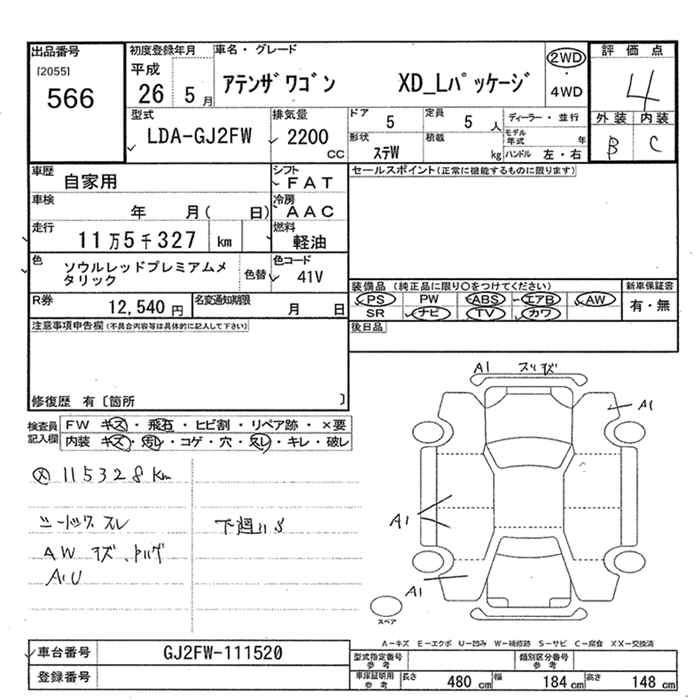 出品番号 初度登録年月 車名・グレード 評価点
[2055] 平成 2WD
566 26 5月 アテンザワゴン XD_Lパッケージ ・ 4
4WD
型式 排気量 ドア 定員 ディーラー・並行 外装 内装
LDA-GJ2FW 2200 CC 5 5 人 モデル年式 年 B C
形状 積載
ステW kg ハンドル 左・右
車歴 自家用 シフト FAT セールスポイント(正常に機能するものに限ります)
車検 年 月( 日) 冷房 AAC
走行 11万5千327 km 燃料 軽油
色 ソウルレッドプレミアムメタリック 色替 色コード 41V
装備品 (純正品に限り○をつけてください) 新車保証書
R券 12,540円 名変通知期限 月 日 PS PW ABS エアB AW 有・無
SR ナビ TV カワ
注意事項申告欄(不具合内容等は具体的に記入して下さい) 後日品
修復歴 有〔箇所 〕
A1 スリキズ
A1
検査員記入欄 FW キズ・飛石・ヒビ割・リペア跡・×要
内装 キズ・汚レ・コゲ・穴・スレ・キレ・破レ
115328km
シートックスレ 下廻りS
AW キズ、
A1
A1
スペア
A-キズ E-エクボ U-凹み W-補修跡 S-サビ C-腐食 XX-交換済
車台番号 GJ2FW-111520 型式指定番号 参考 類別区分番号 参考
登録番号 車庫証明用 参考 長さ 480cm 幅 184cm 高さ 148cm